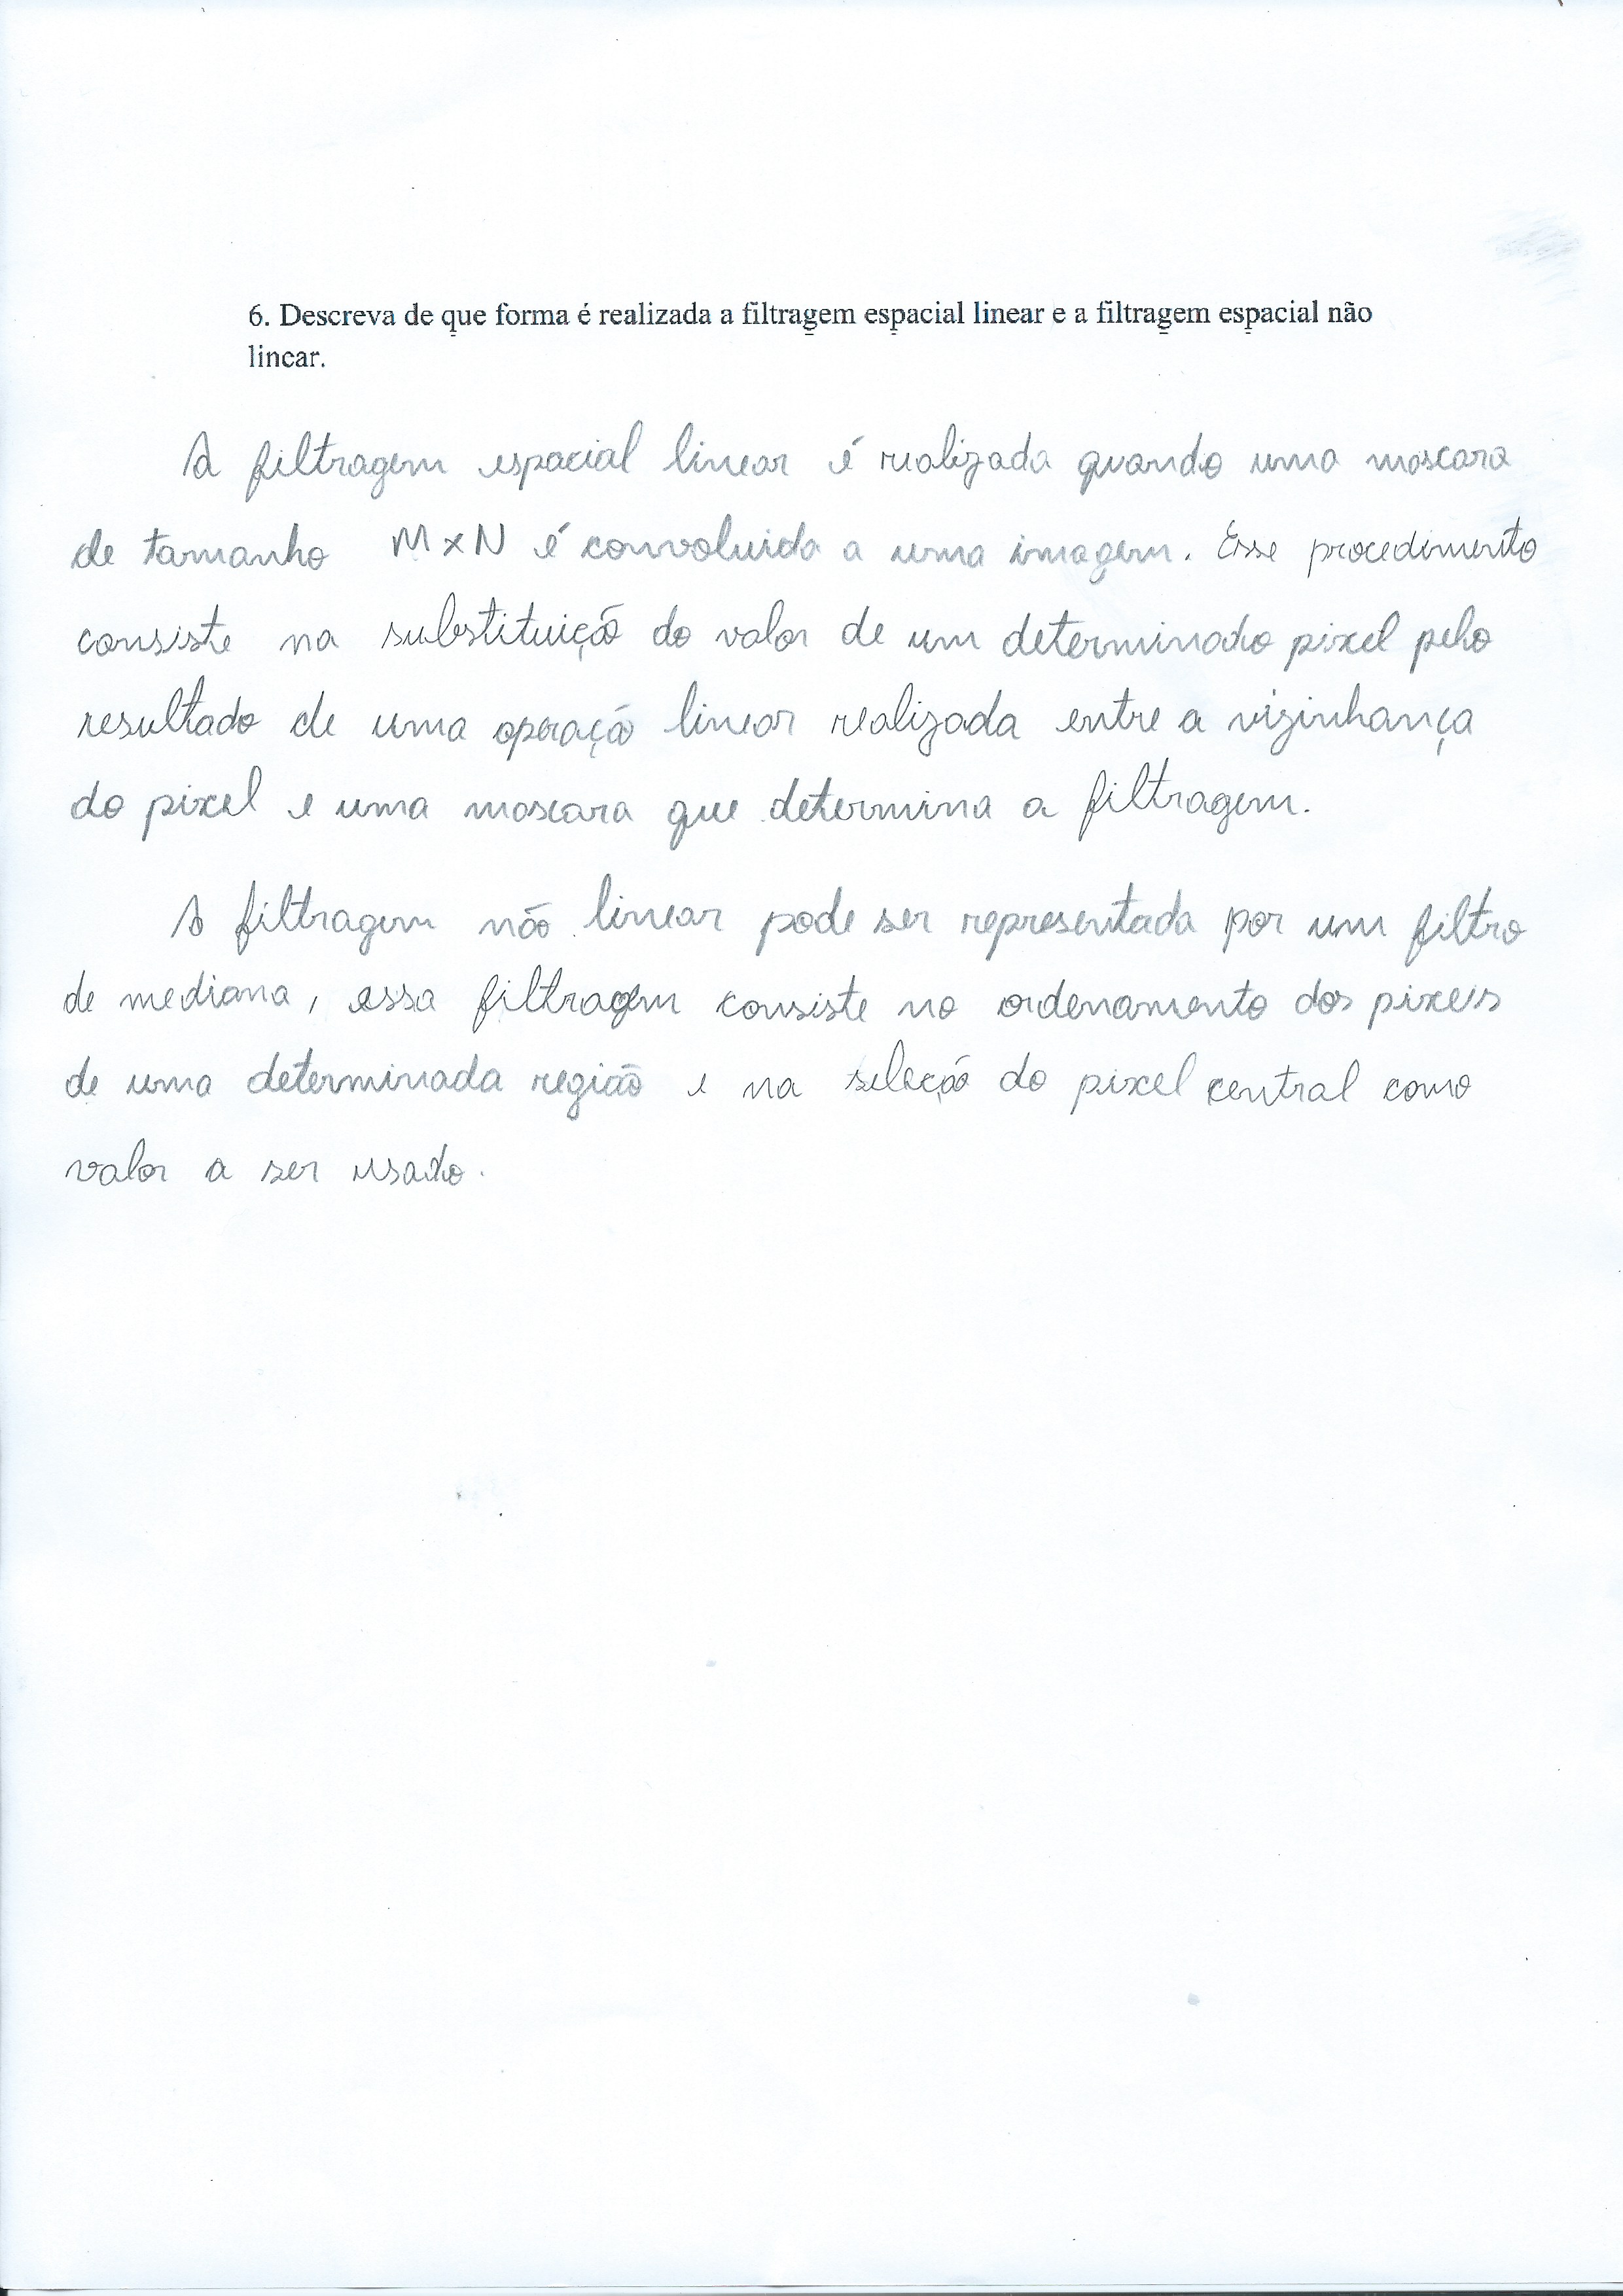 6. Descreva de que forma é realizada a filtragem espacial linear e a filtragem espacial não
linear.
A filtragem espacial linear é realizada quando uma mascara
de tamanho M x N é convoluida a uma imagem. Esse procedimento
consiste na substituição do valor de um determinado pixel pelo
resultado de uma operação linear realizada entre a vizinhança
do pixel e uma mascara que determina a filtragem.
A filtragem não linear pode ser representada por um filtro
de mediana, essa filtragem consiste no ordenamento dos pixeis
de uma determinada região e na seleção do pixel central como
valor a ser usado.